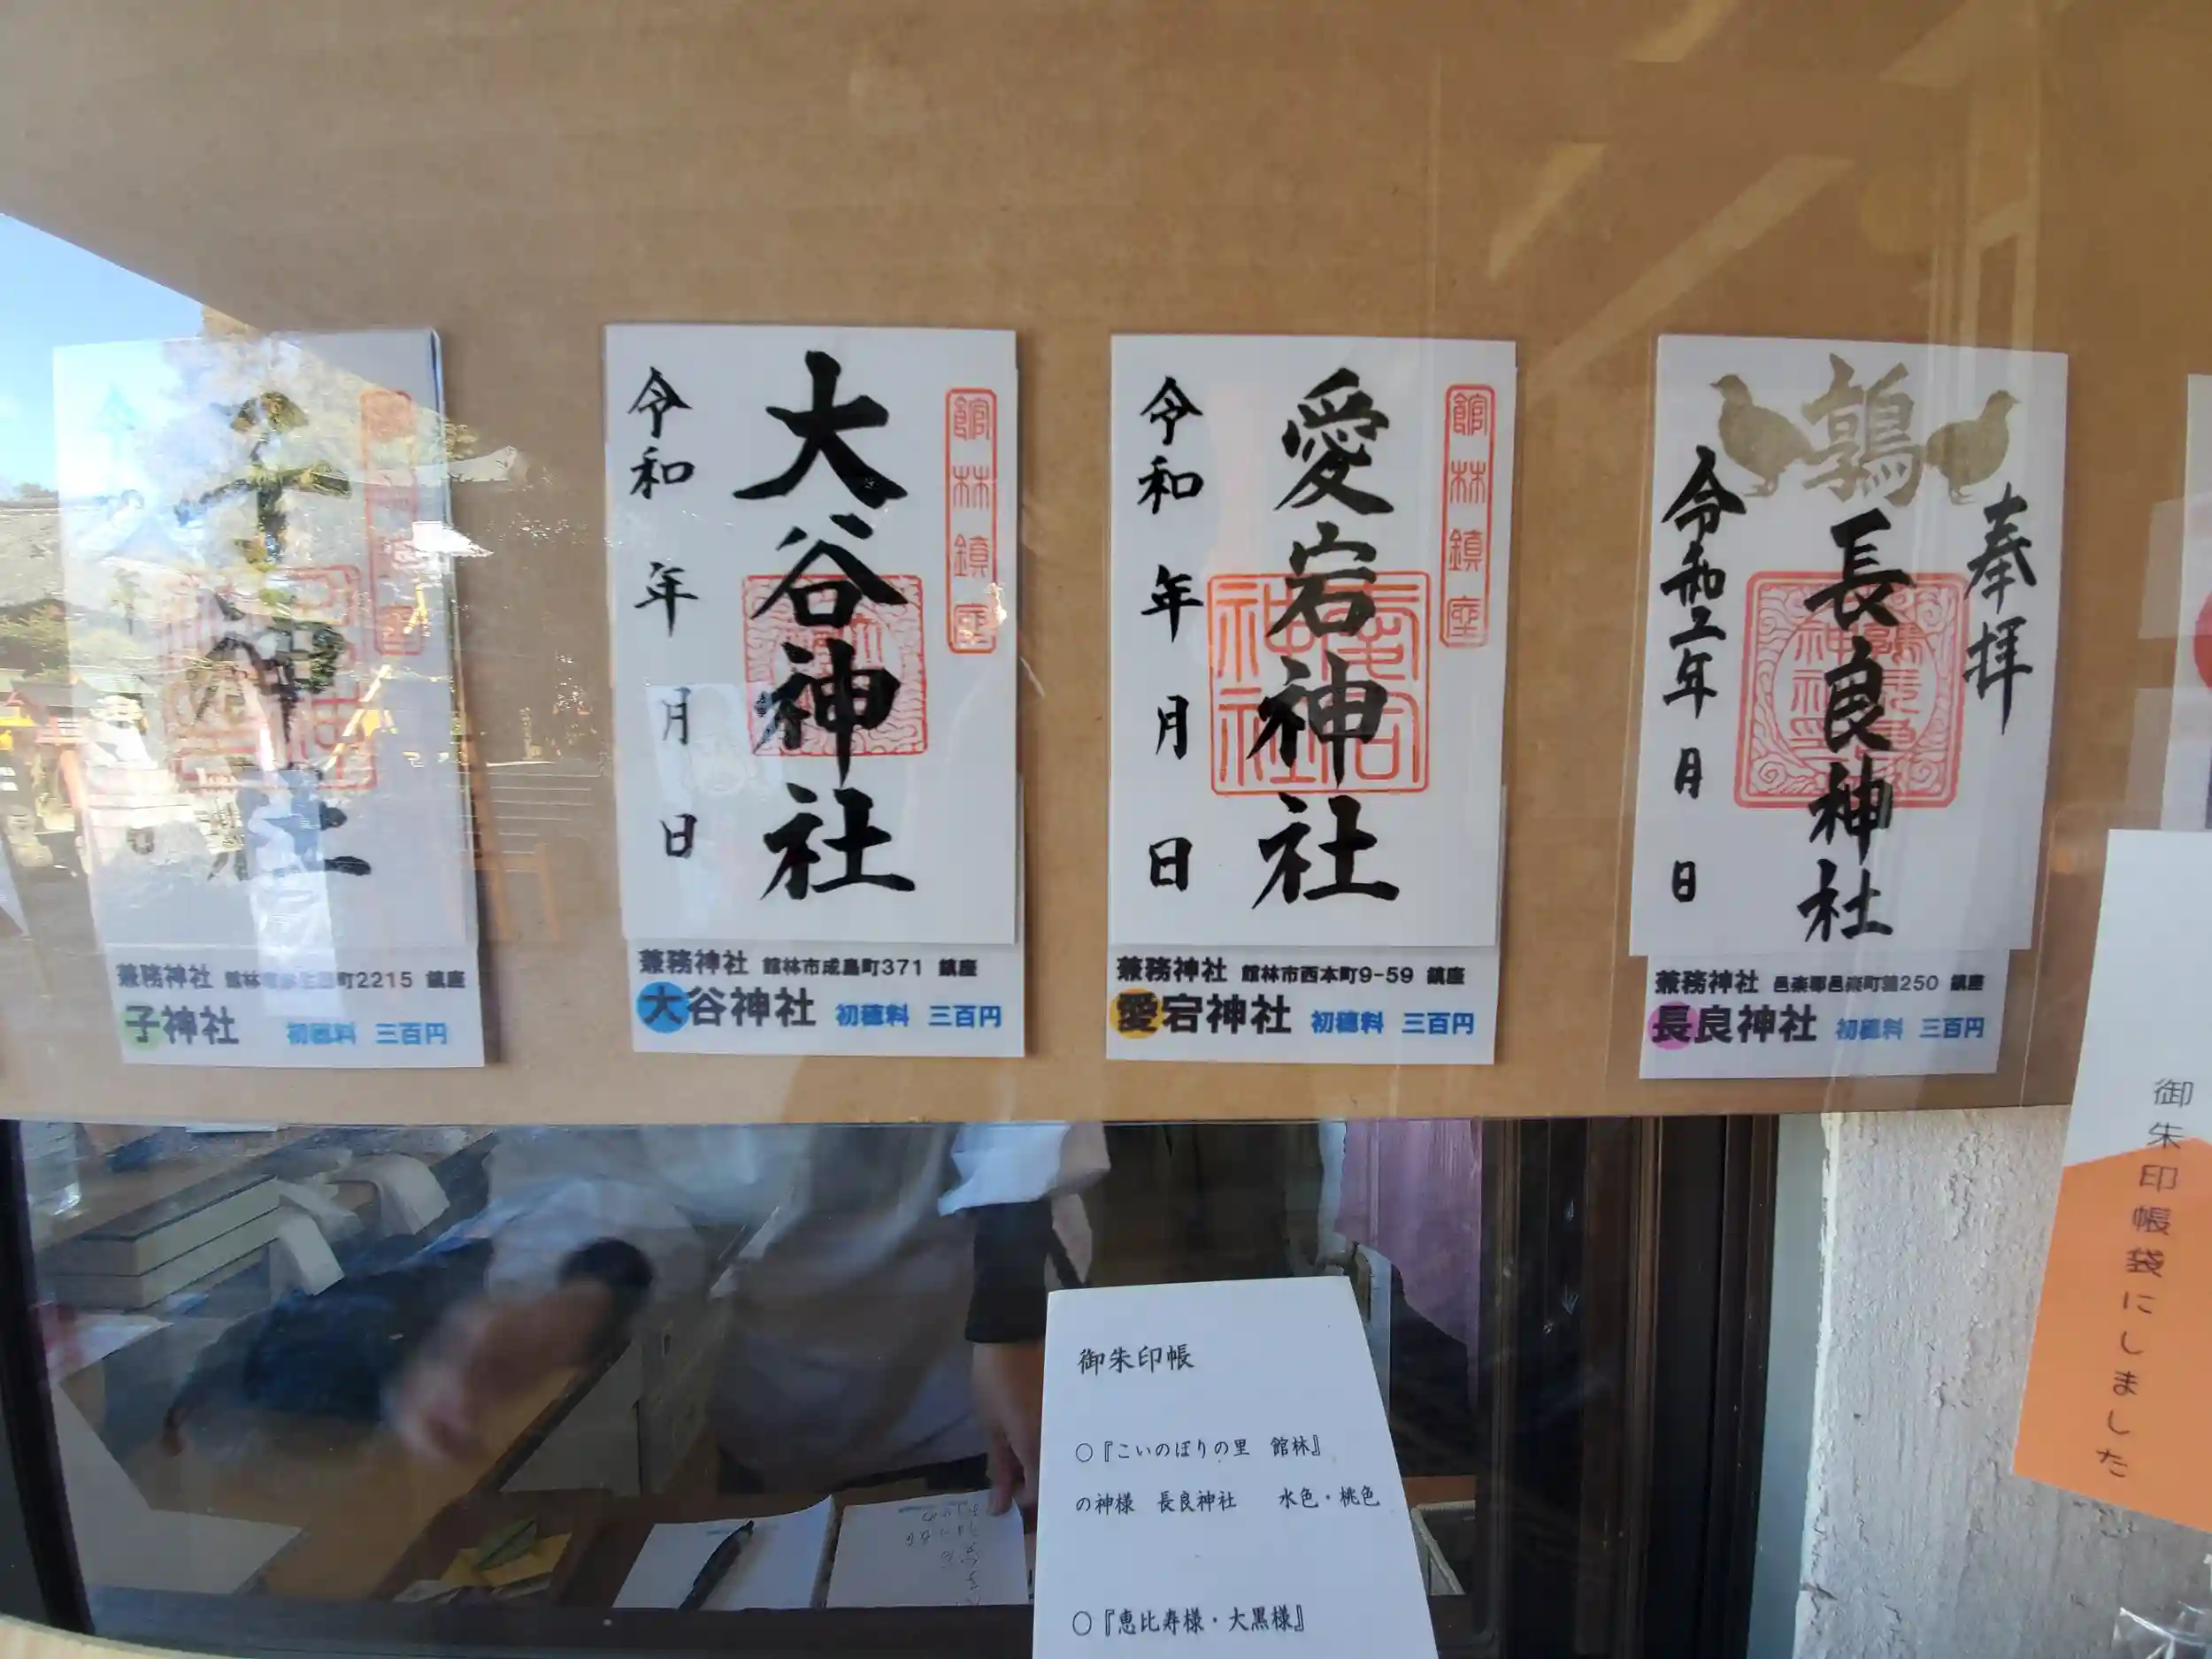 子神社
兼務神社 館林市 町2215 鎮座
子神社 初穂料 三百円
館林鎮座
大谷神社
令和 年 月 日
兼務神社 館林市成島町371 鎮座
大谷神社 初穂料 三百円
館林鎮座
愛宕神社
愛宕神社
令和 年 月 日
兼務神社 館林市西本町9-59 鎮座
愛宕神社 初穂料 三百円
鶉
奉拝
長良神社
令和 年 月 日
兼務神社 邑楽郡邑楽町鶉250 鎮座
長良神社 初穂料 三百円
御朱印帳袋にしました
御朱印帳
○『こいのぼりの里 館林』
の神様 長良神社 水色・桃色
○『恵比寿様・大黒様』